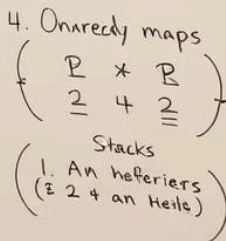 4. Onnrecdy maps
P * P
2 4 2
Stacks
1. An heferiers
(2 4 an Heile)